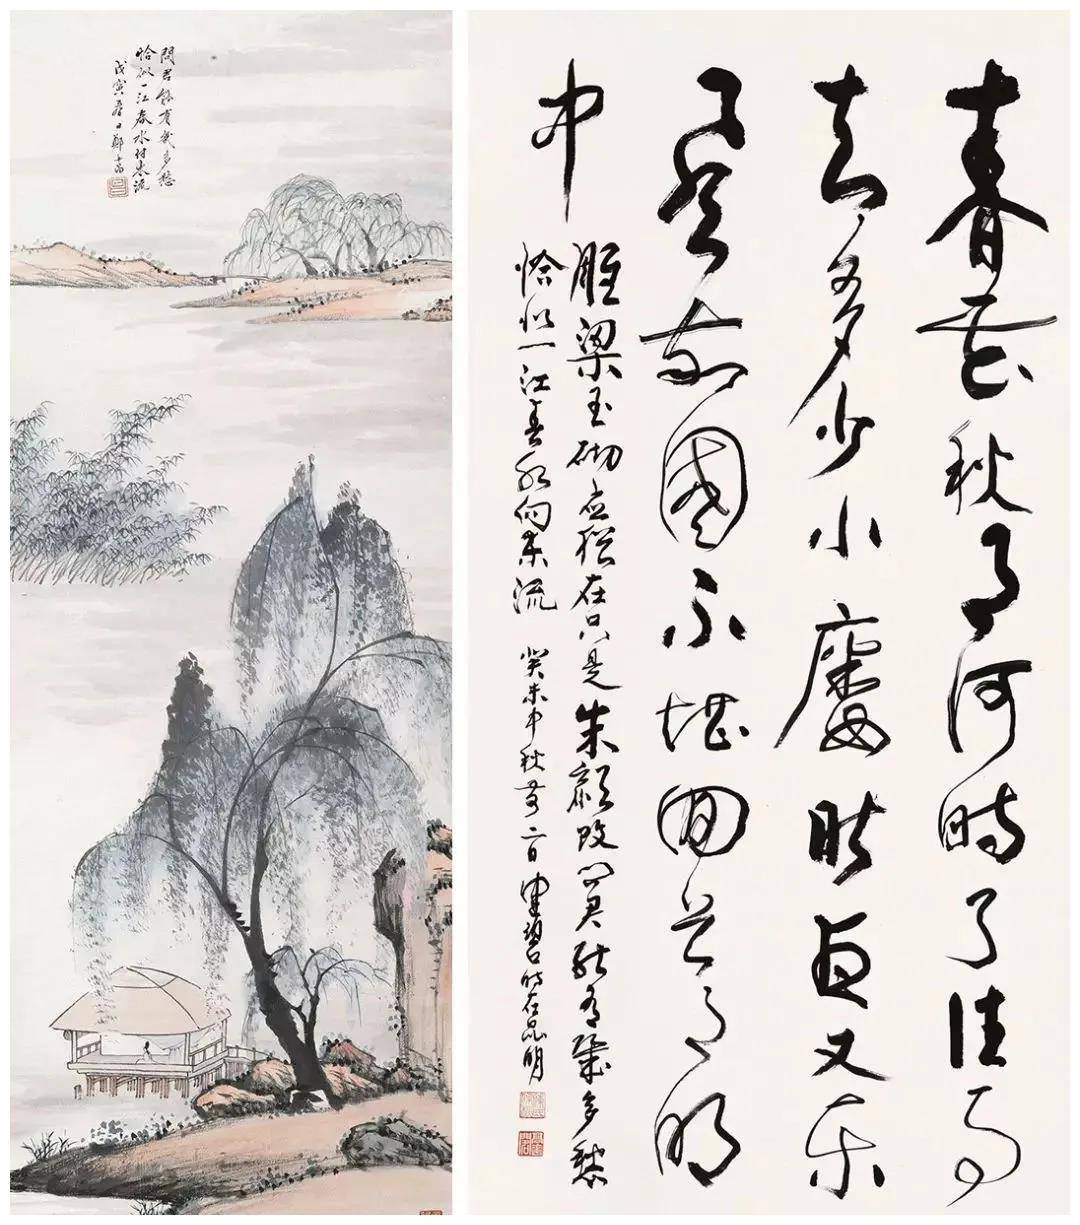 問君能有幾多愁
恰似一江春水向東流
戊寅春日鄭午昌
春花秋月何時了往事
知多少小樓昨夜又東
風故國不堪回首月明
中
雕梁玉砌应猶在只是朱顏改問君能有幾多愁
恰似一江春水向東流 癸未中秋二日時在昆明